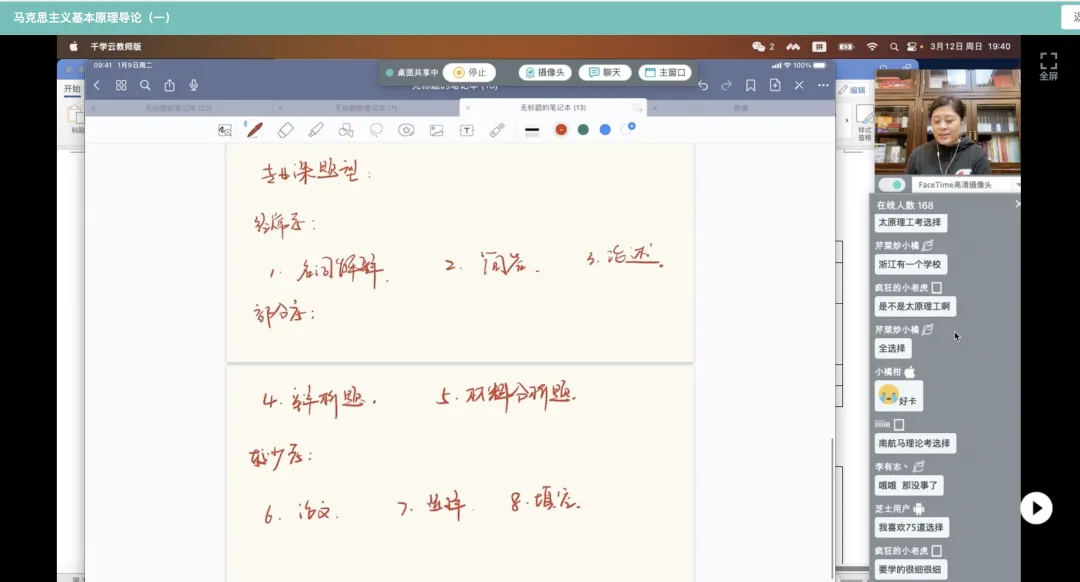 马克思主义基本原理导论（一）
千学云教师版
2
拼
3月12日 周日 19:40
全屏
09:41 1月9日周二
桌面共享中
停止
摄像头
聊天
主窗口
100%
开始
编辑
粘贴
样式
窗格
无标题的笔记本 (7)
无标题的笔记本 (13)
图像
专业课题型：
经常考：
1. 名词解释.
2. 简答.
3. 论述.
部分考：
4. 辨析题.
5. 材料分析题.
较少考：
6. 论文.
7. 选择.
8. 填空.
FaceTime高清摄像头
在线人数 168
太原理工考选择
芹菜炒小橘
浙江有一个学校
疯狂的小老虎
是不是太原理工啊
芹菜炒小橘
全选择
小橘柑
好卡
南航马理论考选择
李有志丶
哦哦 那没事了
芝士用户
我喜欢75道选择
疯狂的小老虎
要学的很细很细